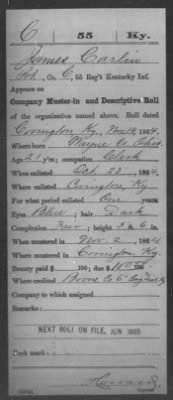 C 55 Ky.
James Carlin
Pvt., Co. C, 55 Reg't Kentucky Inf.
Appears on
Company Muster-in and Descriptive Roll
of the organization named above. Roll dated
Covington Ky, Nov 19, 1864.
Where born Wayne Co Ohio
Age 21 y'rs; occupation Clerk
When enlisted Oct. 23, 1864.
Where enlisted Covington, Ky
For what period enlisted One years.
Eyes Blue; hair Dark
Complexion Fair; height 5 ft. 6 in.
When mustered in Nov. 2, 1864
Where mustered in Covington Ky.
Bounty paid $ 100; due $ 100
Where credited Boone Co 6" Cong Dist Ky
Company to which assigned
Remarks:
NEXT ROLL ON FILE, JUN 1865
Book mark: